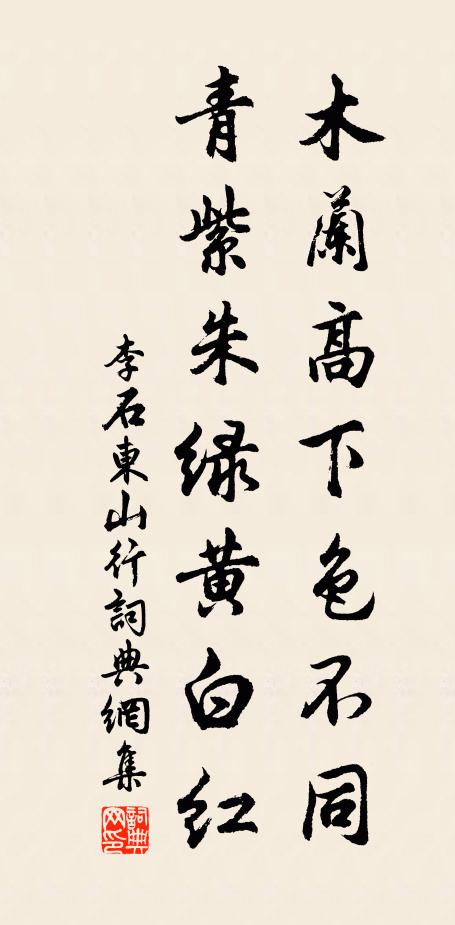 木蘭高下色不同
青紫朱緑黄白紅
李石東山行詞典網集
詞典網印